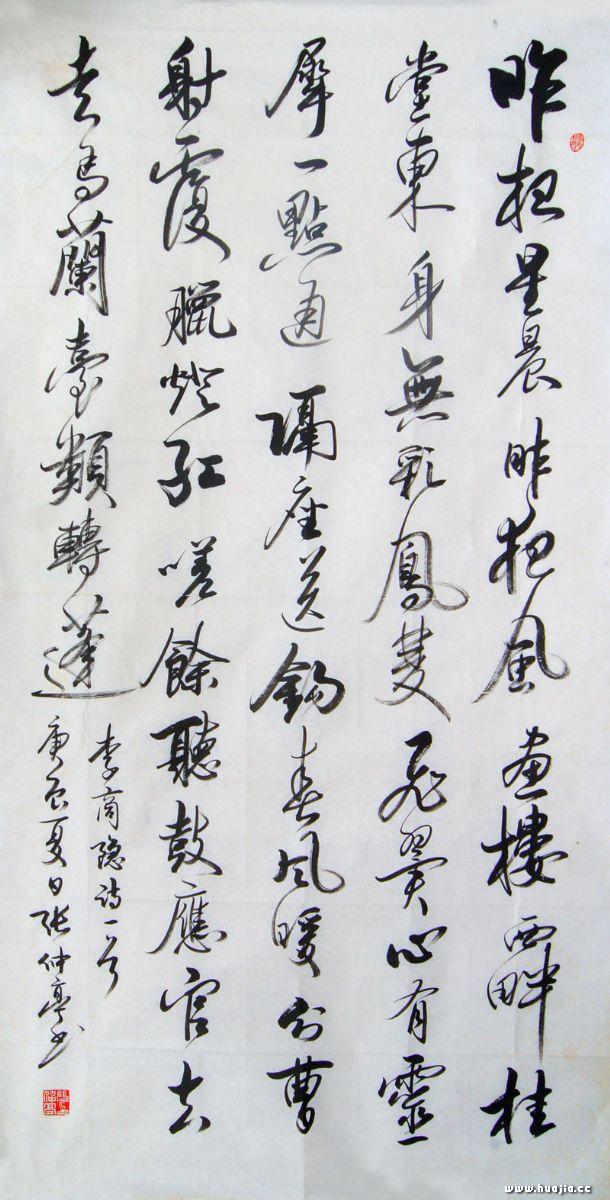 昨夜星晨昨夜風畫樓西畔桂
堂東身無彩鳳雙飛翼心有靈
犀一點通隔座送鈎春風暖分曹
射覆臘燈紅嗟餘聽鼓應官去
走馬蘭臺類轉蓬
李商隐诗一首
庚辰夏日张仲亭书
www.huajia.cc